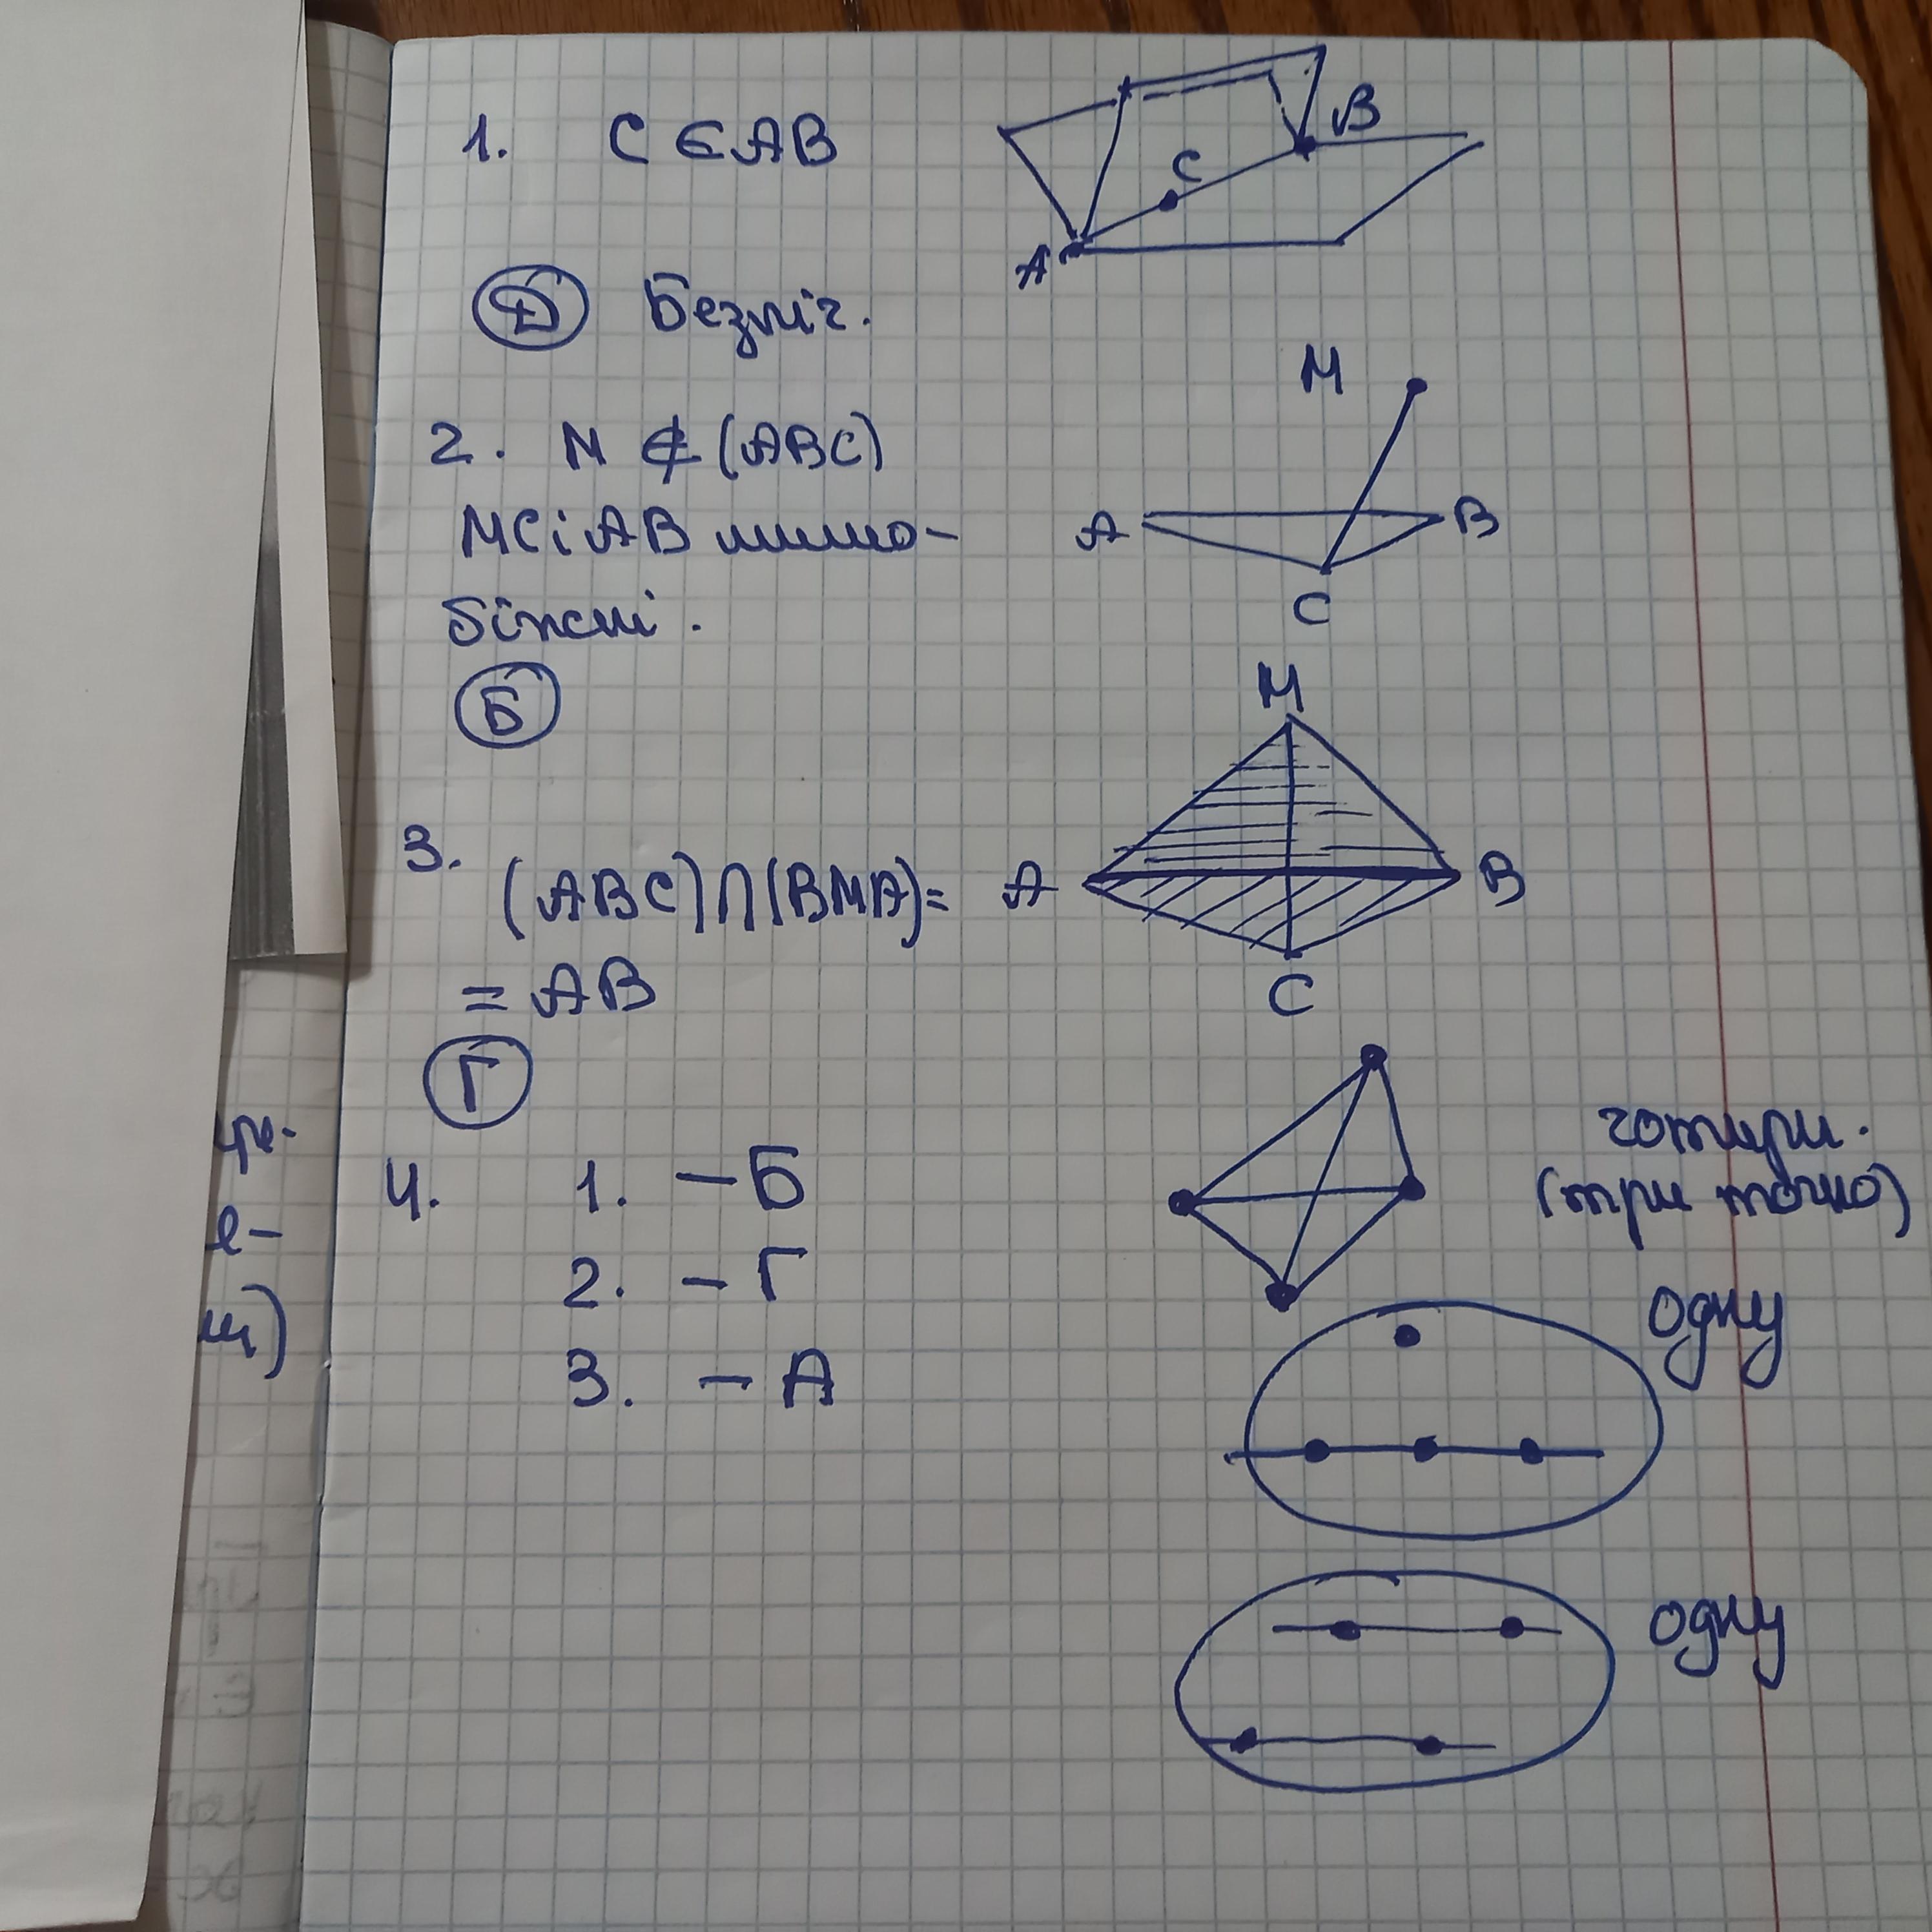 1. C ∈ AB
A C B
Д Безліч.
2. M ∉ (ABC)
MC і AB мимо-
біжні.
M A B C
Б
3. (ABC) ∩ (BMA) =
= AB
M A B C
Г
4. 1. – Б
2. – Г
3. – А
чотири.
(три точно)
одну
одну